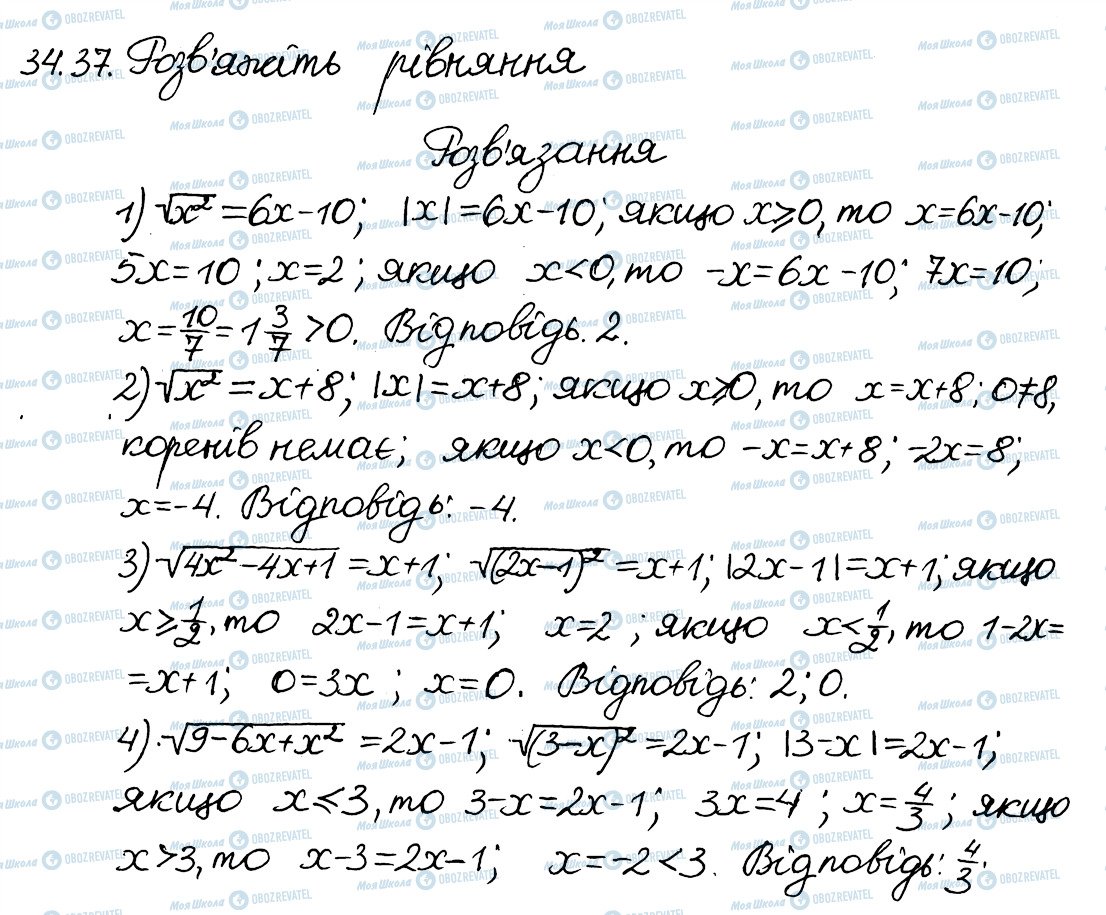 34.37. Розв'яжіть рівняння
Розв'язання
1) √x² = 6x-10; |x| = 6x-10; якщо x≥0, то x=6x-10;
5x=10; x=2; якщо x<0, то -x=6x-10; 7x=10;
x=10/7=1 3/7>0. Відповідь. 2.
2) √x² = x+8; |x|=x+8; якщо x≥0, то x=x+8; 0≠8,
коренів немає; якщо x<0, то -x=x+8; -2x=8;
x=-4. Відповідь: -4.
3) √4x²-4x+1 = x+1; √(2x-1)² = x+1; |2x-1|=x+1; якщо
x≥1/2, то 2x-1=x+1; x=2; якщо x<1/2, то 1-2x=
=x+1; 0=3x; x=0. Відповідь: 2; 0.
4) √9-6x+x² = 2x-1; √(3-x)² = 2x-1; |3-x|=2x-1;
якщо x≤3, то 3-x=2x-1; 3x=4; x=4/3; якщо
x>3, то x-3=2x-1; x=-2<3. Відповідь: 4/3.
Моя Школа OBOZREVATEL